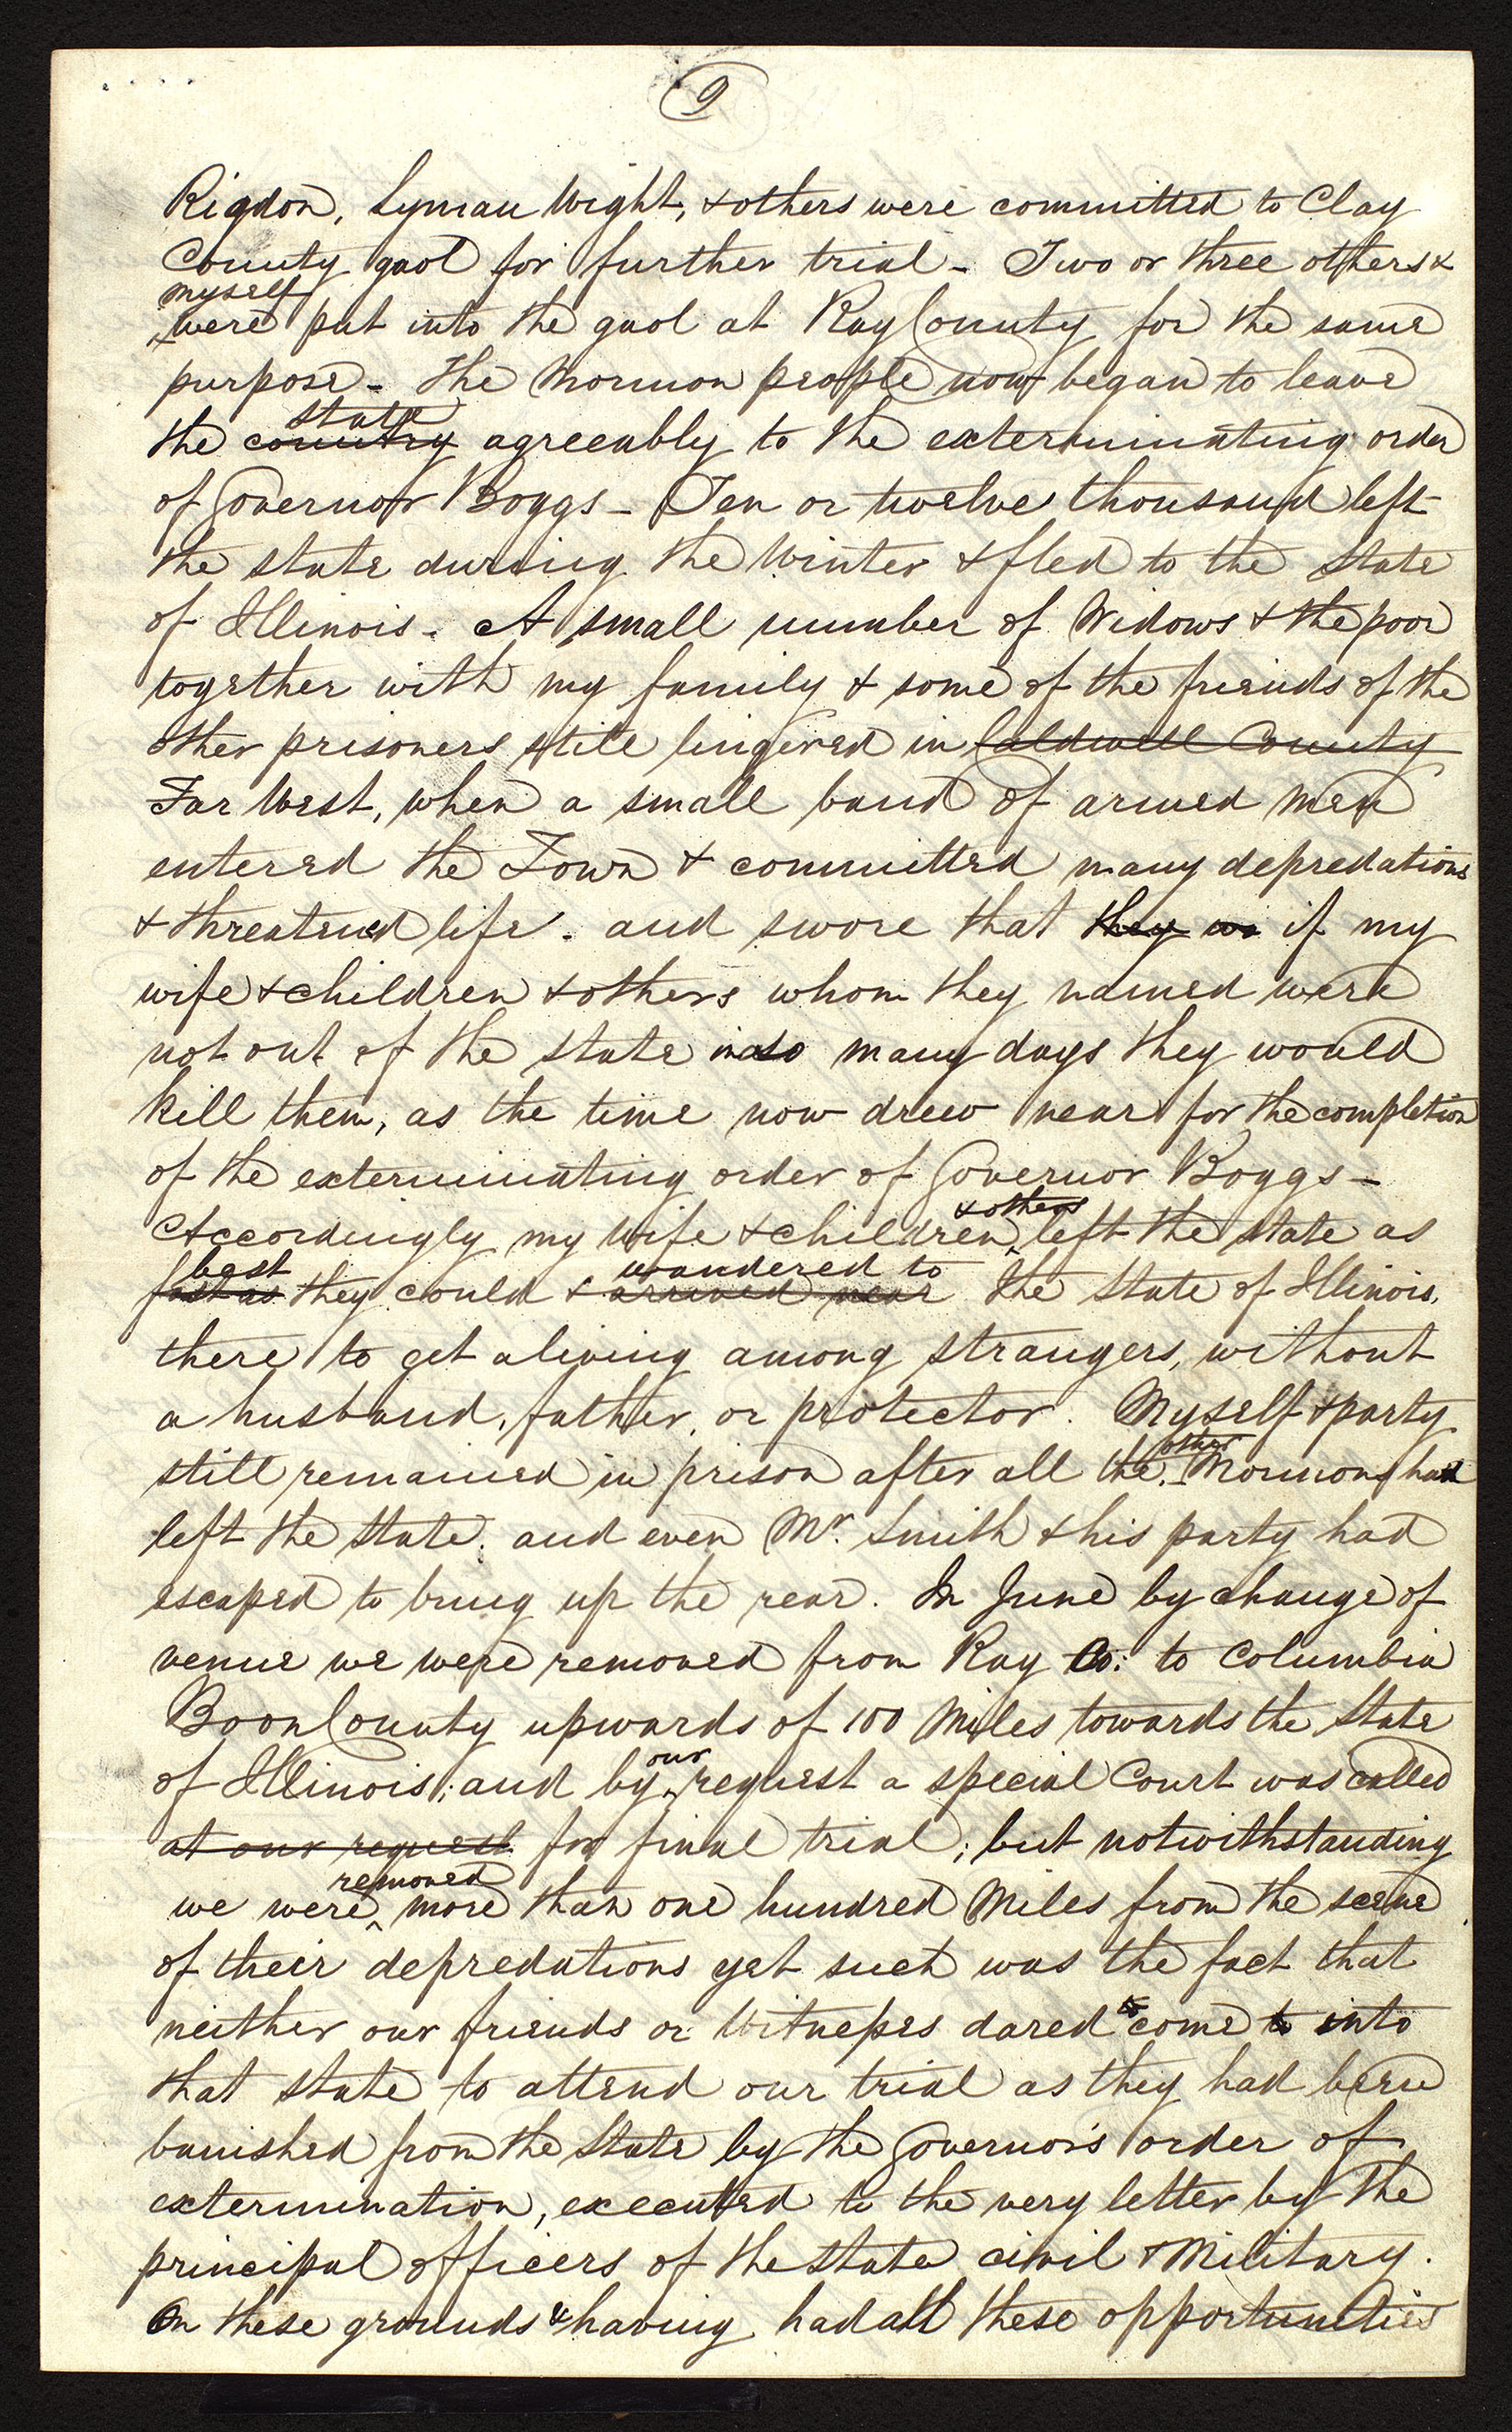 9
Rigdon, Lyman Wight, & others were committed to Clay
County gaol for further trial - Two or three others &
myself
were put into the gaol at Ray County for the same
purpose - The Mormon people now began to leave
state
the country agreeably to the exterminating order
of Governor Boggs - Ten or twelve thousand left
the state during the Winter & fled to the State
of Illinois. A small number of Widows & the poor
together with my family & some of the friends of the
other prisoners still lingered in Caldwell County
Far West, when a small band of armed men
entered the Town & committed many depredations
& threatened life. and swore that they wo if my
wife & children & others whom they named were
not out of the state in so many days they would
kill them, as the time now drew near for the completion
of the exterminating order of Governor Boggs -
& others
Accordingly my wife & children left the state as
best wandered to
fast as they could & arrived near the State of Illinois,
there to get a living among strangers, without
a husband, father, or protector. Myself & party
other
still remained in prison after all the Mormons had
left the State. and even Mr. Smith & his party had
escaped to bring up the rear. In June by change of
venue we were removed from Ray Co: to Columbia
Boon County upwards of 100 Miles towards the State
our
of Illinois; and by request a special Court was called
at our request for final trial; but notwithstanding
removed
we were more than one hundred Miles from the scene
of their depredations yet such was the fact that
to
neither our friends or Witnesses dared come to into
that state to attend our trial as they had been
banished from the State by the Governor's order of
extermination, executed to the very letter by the
principal officers of the State civil & Military.
On these grounds & having had all these opportunities